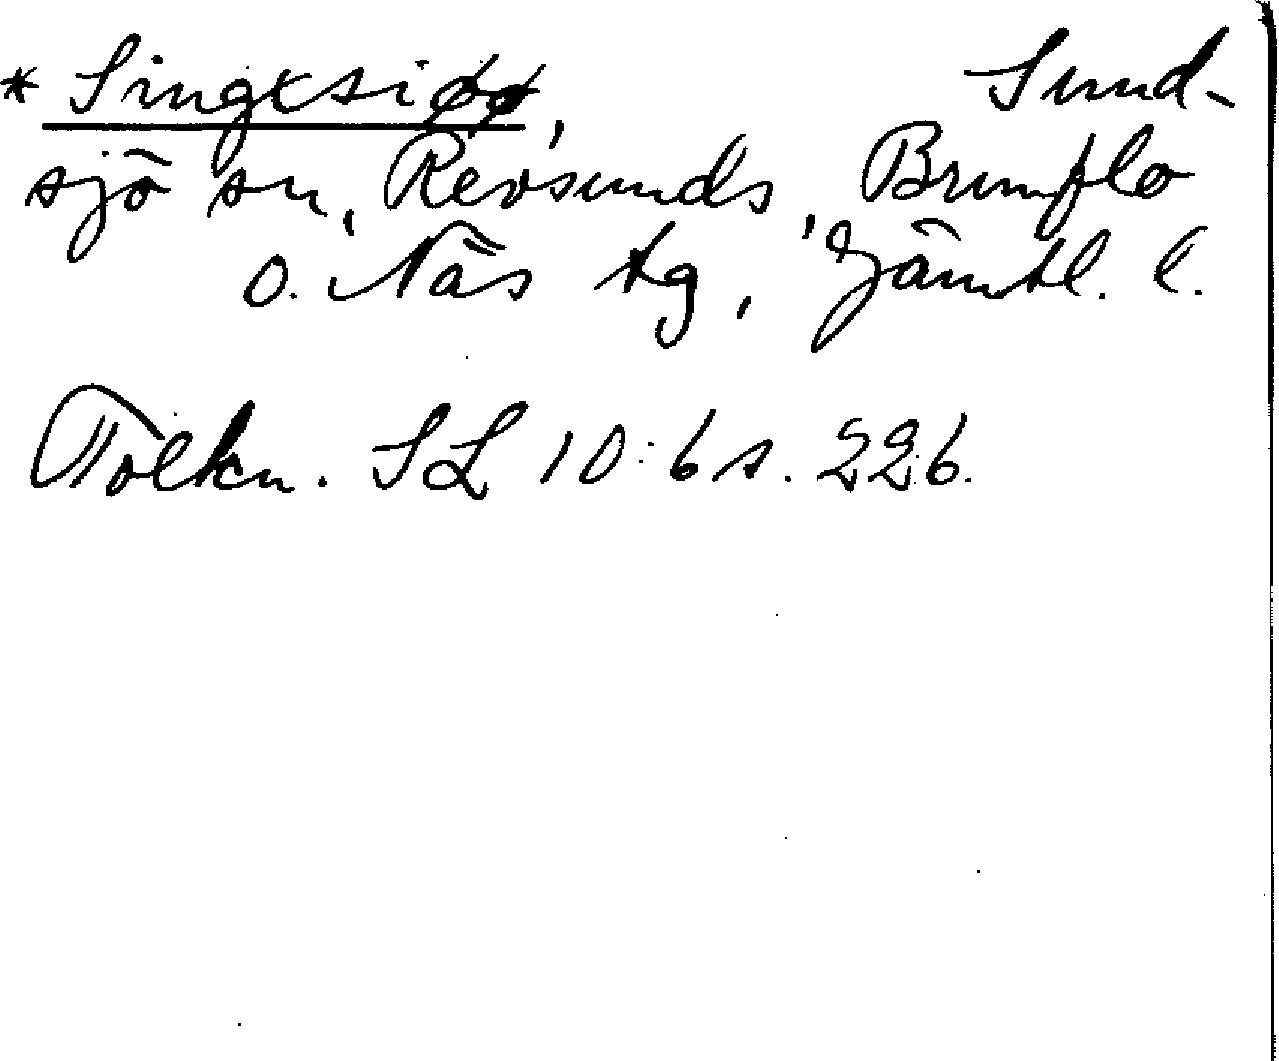 * Singxsiøø, Sund-
sjö sn, Revsunds, Brunflo
o. Näs tg, Jämtl. l.
Tolkn. SL 10:6 s. 226.